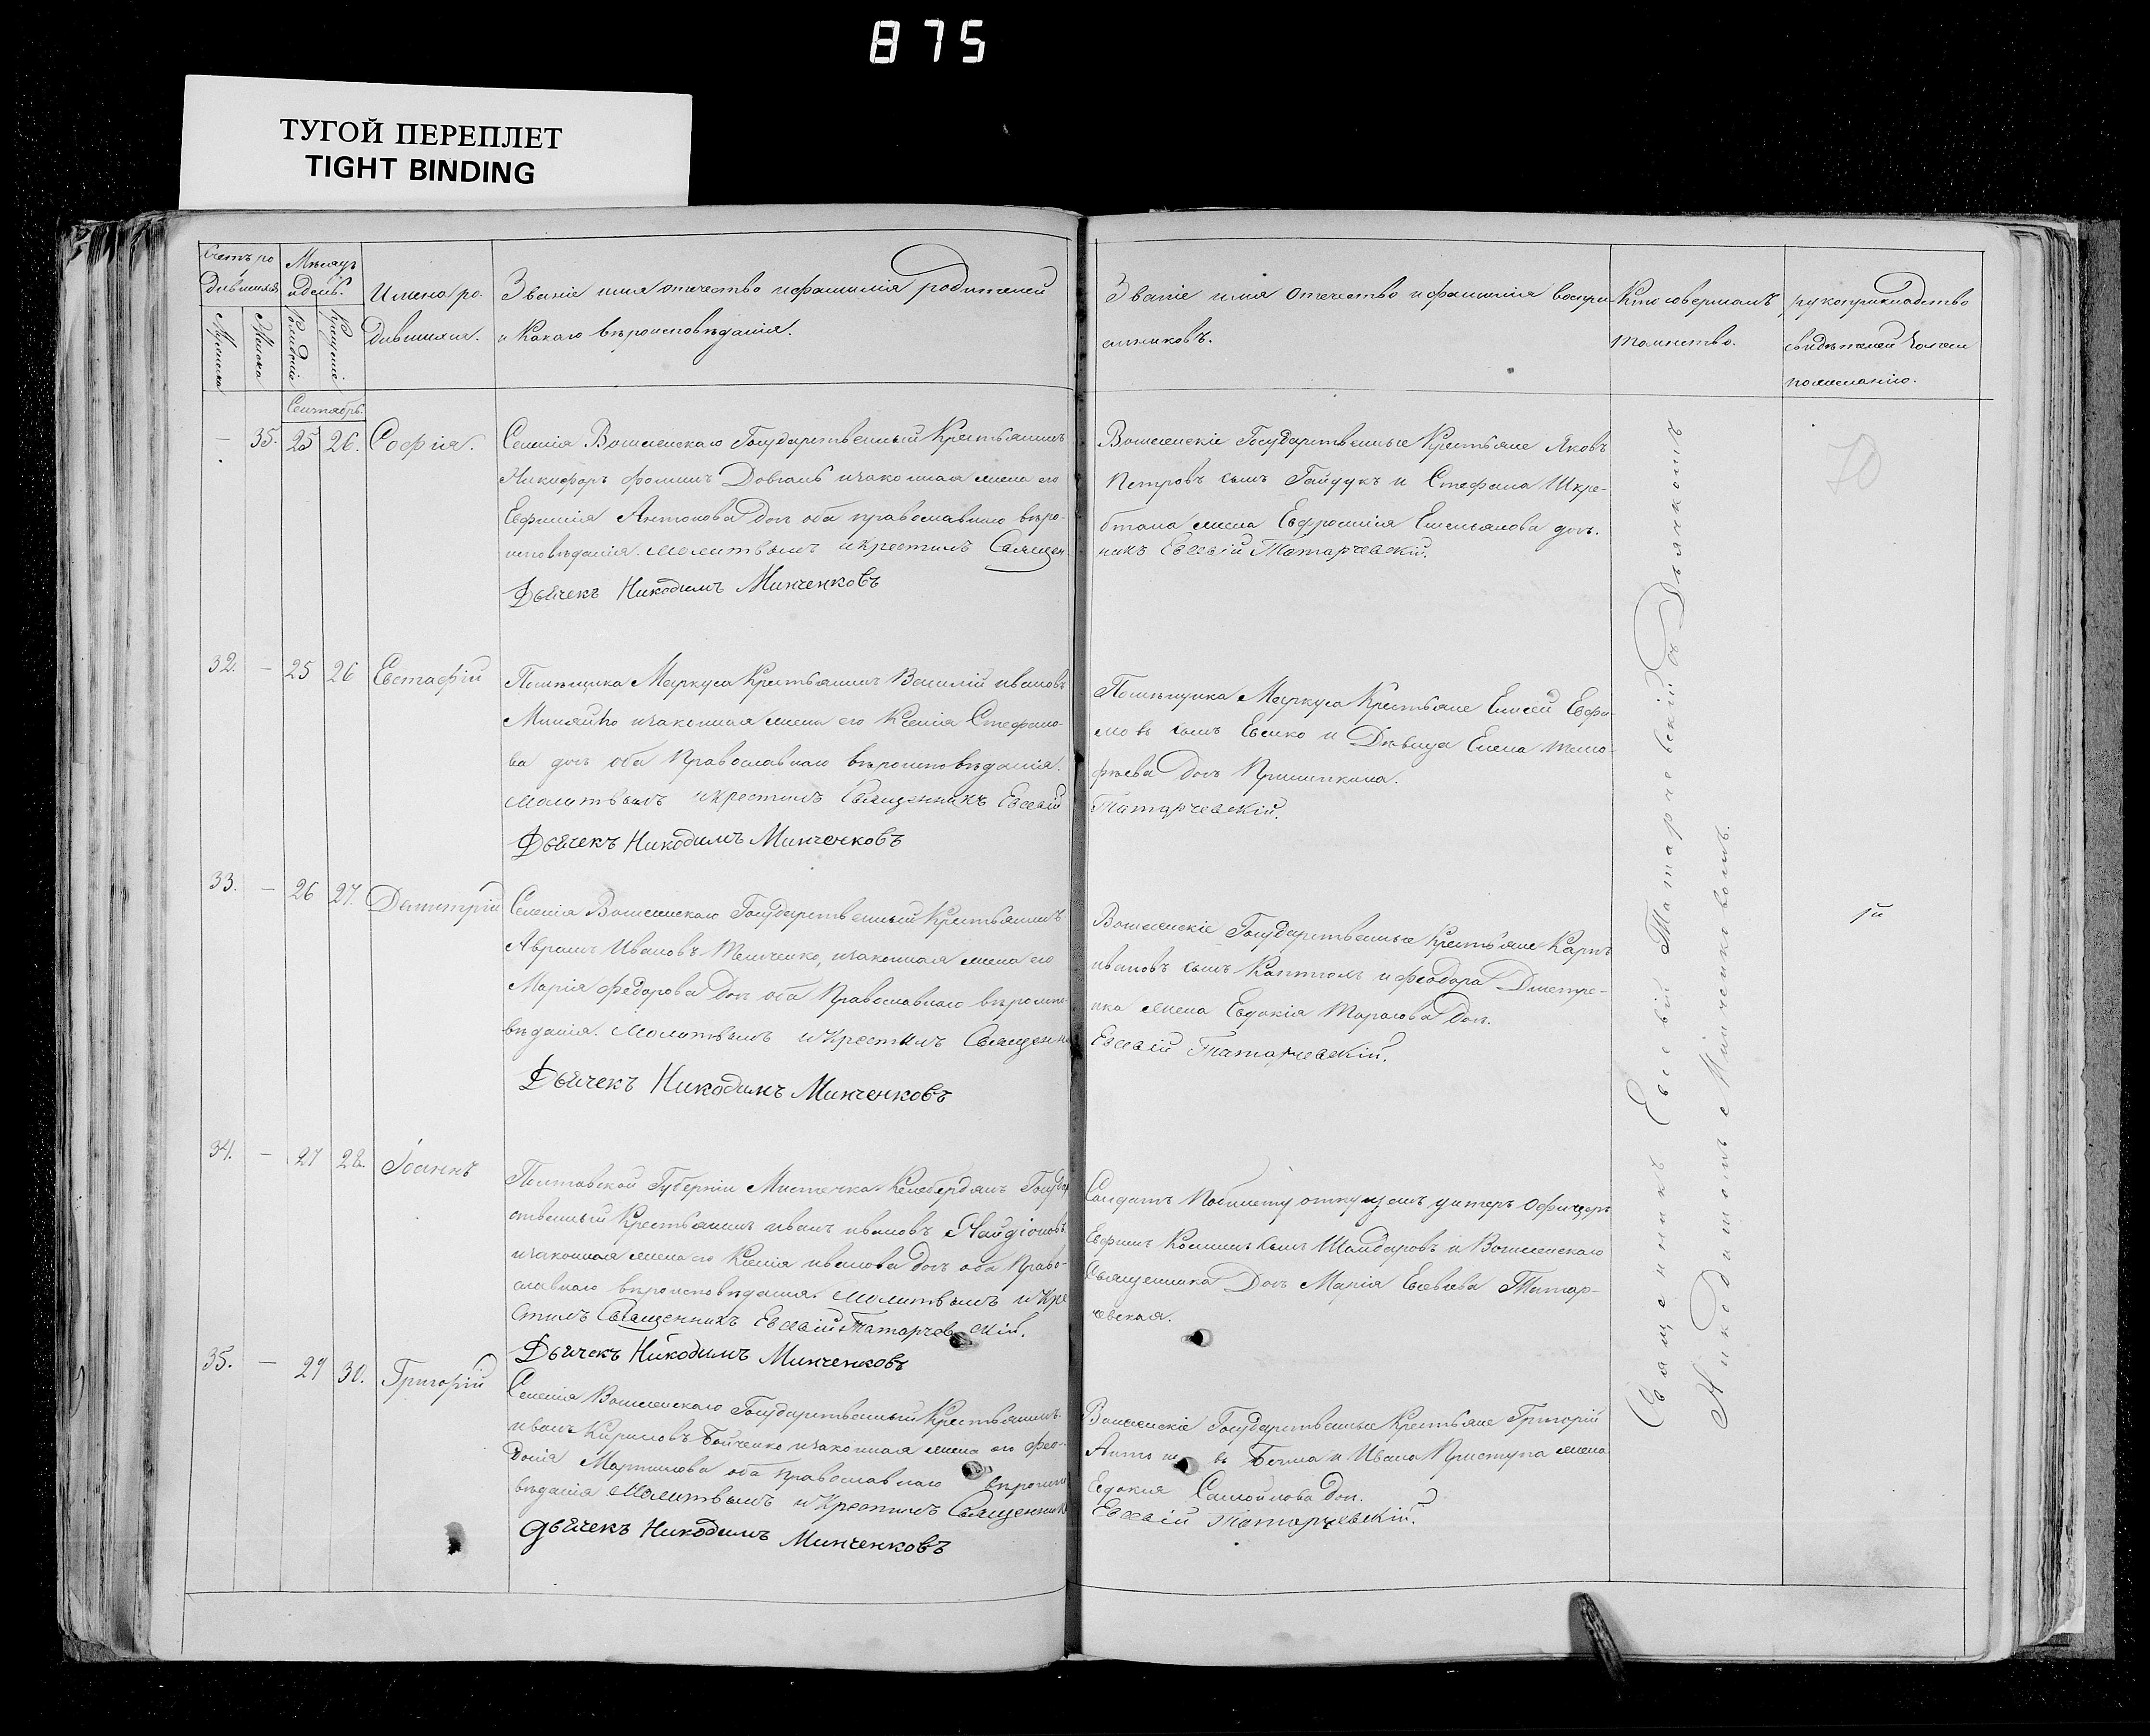 875
ТУГОЙ ПЕРЕПЛЕТ
TIGHT BINDING
Счетъ ро
дившихся
Мѣсяцъ
и день.
Мужеска
Женска
Рожденіе
Крещеніе
Имена ро-
дившихся.
Званіе имя отечество и фамилія родителей
и какаго вѣроисповѣданія.
Званіе имя отечество и фамилія воспрі-
емниковъ.
Кто совершалъ
таинство.
рукоприкладство
свидѣтелей
по желанію.
Сентябрь.
— 35. 25 26. Софія.
Селенія Государственный Крестьянинъ
Никифоръ Фоминъ Довгаль и законная жена его
Евфимія Антонова дочь оба православнаго вѣро-
исповѣданія. Молитвилъ и крестилъ Священ
Дьячекъ Никодимъ Минченковъ
Государственные Крестьяне Яковъ
Петровъ сынъ Гайдукъ и Стефана Шкре-
бтана жена Евфросинія Емельянова дочь.
никъ Евсевій Татарчевскій.
70
32. — 25 26 Евстафій
Помѣщика Маркуса Крестьянинъ Василій Ивановъ
и законная жена его Ксенія Стефано-
ва дочь оба Православнаго вѣроисповѣданія.
Молитвилъ и крестилъ Священникъ Евсевій
Дьячекъ Никодимъ Минченковъ
Помѣщика Маркуса Крестьяне Елисей Евфи-
мовъ сынъ и Дѣвица Елена Тимо-
фѣева дочь
Татарчевскій.
33. — 26 27. Димитрій
Селенія Государственный Крестьянинъ
Аврамъ Ивановъ и законная жена его
Марія Федорова дочь оба Православнаго вѣроиспо-
вѣданія. Молитвилъ и крестилъ Священни
Дьячекъ Никодимъ Минченковъ
Государственные Крестьяне Карпъ
Ивановъ сынъ и Феодора Дмитре-
нка жена Евдокія Тарасова дочь.
Евсевій Татарчевскій.
34. — 27 28. Іоаннъ
Полтавской Губерніи Мистечка Келебердянъ Государ
ственный Крестьянинъ Иванъ Ивановъ
и законная жена его Ксенія Иванова дочь оба Право-
славнаго вѣроисповѣданія. Молитвилъ и Кре
стилъ Священникъ Евсевій Татарчевскій.
Дьячекъ Никодимъ Минченковъ
Солдатъ унтеръ Офицеръ
Евфимъ сынъ Шандаровъ и
Священника Дочь Марія Евсевіева Татар-
чевская.
35. — 29 30. Григорій
Селенія Государственный Крестьянинъ
Иванъ Кириловъ Бойченко и законная жена его Фео-
досія Мартинова оба православнаго вѣроиспо
вѣданія Молитвилъ и крестилъ Священник
Дьячекъ Никодимъ Минченковъ
Государственные Крестьяне Григорій
Антоновъ и Ивана Приступа жена
Евдокия Самойлова Доч.
Евсевій Татарчевскій.
Священникъ Евсевій Татарчевскій съ Дьячкомъ
Никодимомъ Минченковымъ.